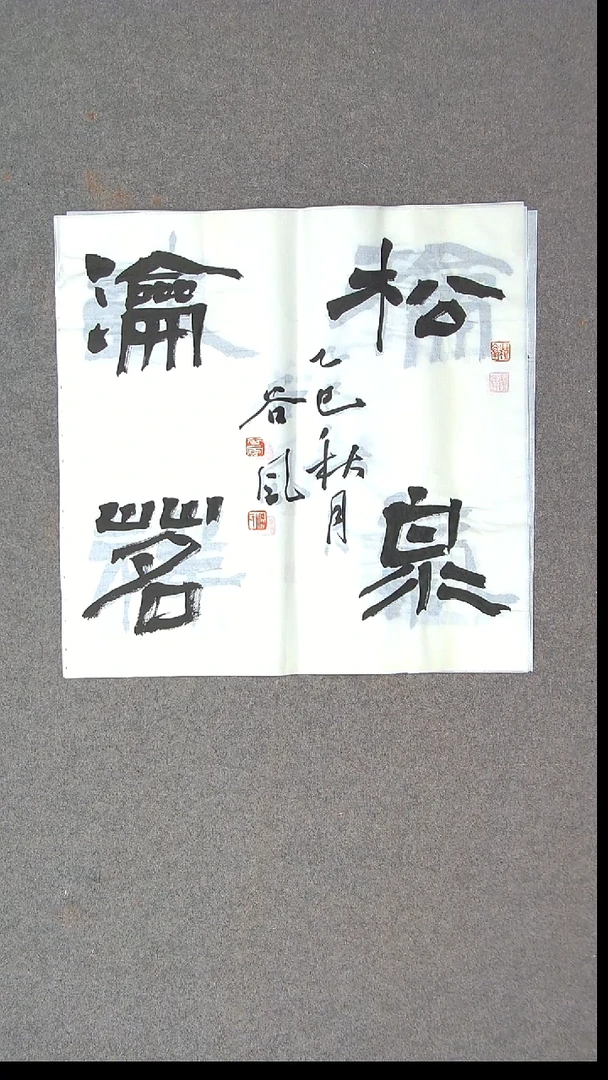 松泉
瀹茗
乙巳秋月
谷風